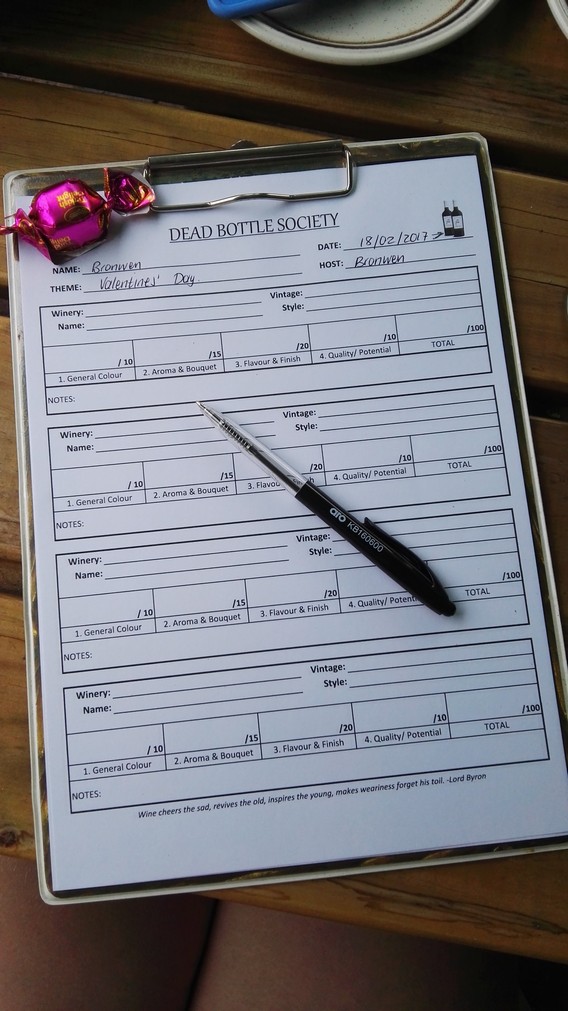 DEAD BOTTLE SOCIETY
DATE: 18/02/2017
NAME: Bronwen HOST: Bronwen
THEME: Valentines' Day.
Winery: Vintage:
Name: Style:
/10 /15 /20 /10 /100
1. General Colour 2. Aroma & Bouquet 3. Flavour & Finish 4. Quality/ Potential TOTAL
NOTES:
Winery: Vintage:
Name: Style:
/10 /15 /20 /10 /100
1. General Colour 2. Aroma & Bouquet 3. Flavou sh 4. Quality/ Potential TOTAL
NOTES:
Winery: Vintage:
Name: Style:
/10 /15 /20 /100
1. General Colour 2. Aroma & Bouquet 3. Flavour & Finish 4. Quality/ Potent TOTAL
NOTES:
Winery: Vintage:
Name: Style:
/10 /15 /20 /10 /100
1. General Colour 2. Aroma & Bouquet 3. Flavour & Finish 4. Quality/ Potential TOTAL
NOTES:
Wine cheers the sad, revives the old, inspires the young, makes weariness forget his toil. -Lord Byron
aro KB160600